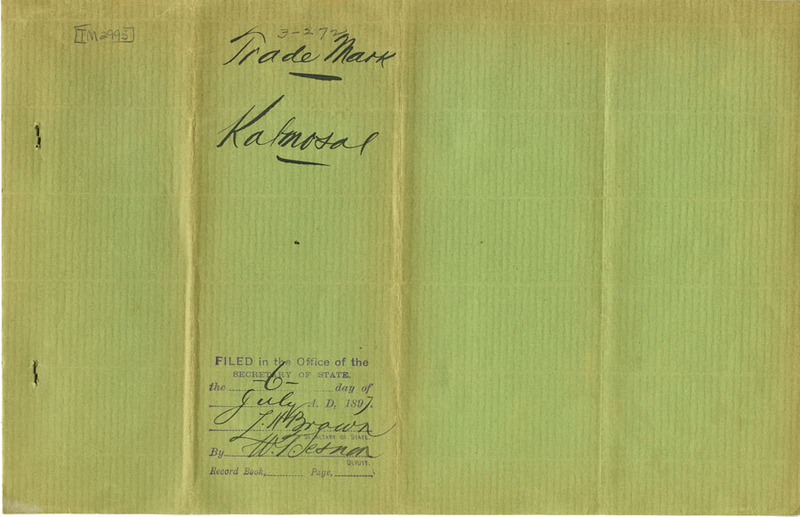 [TM2995]
3-272
Trade Mark
Kalmosal
FILED in the Office of the
SECRETARY OF STATE,
the -6- day of
July A. D, 1897.
L. H. Brown
SECRETARY OF STATE.
By W.
DEPUTY.
Record Book, Page,